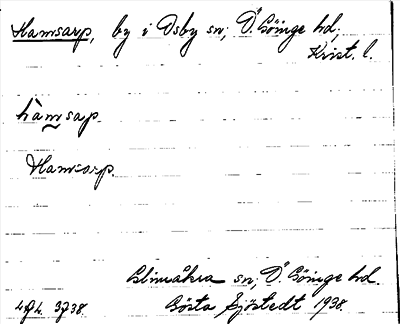 Hamsarp, by i Osby sn; Ö. Göinge hd,
Krist. l.
hàmsap
Hamsarp.
Glimåkra sn, Ö. Göinge hd.
Gösta Sjöstedt 1938.